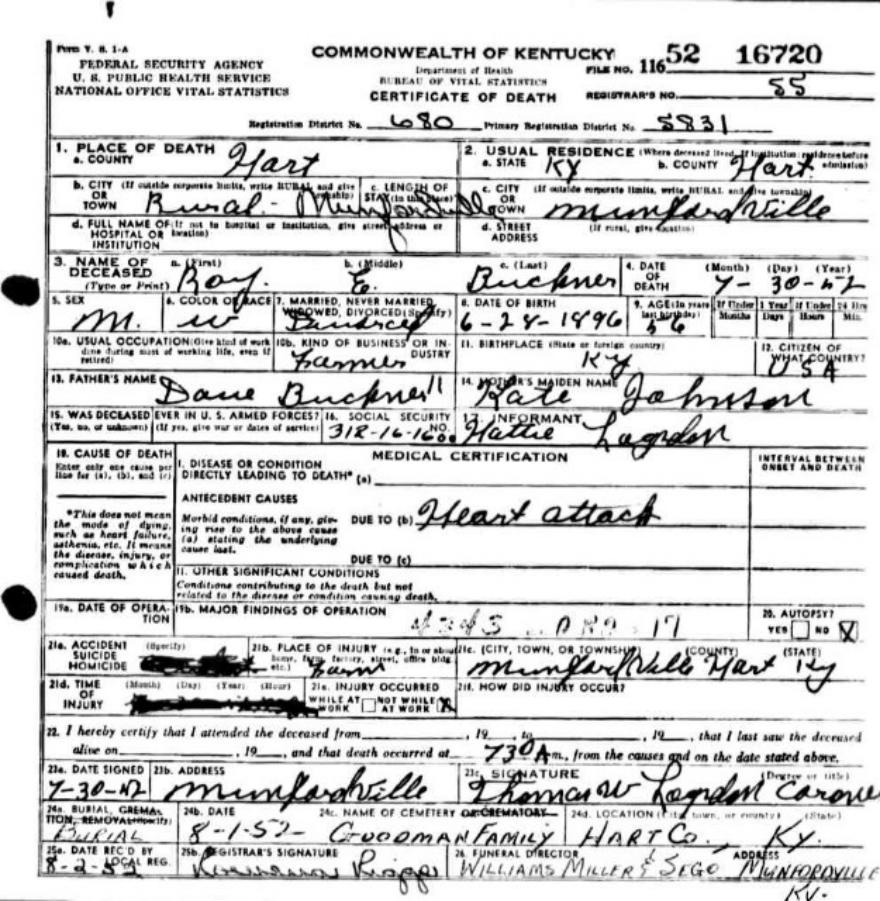 Form V. S. 1-A
FEDERAL SECURITY AGENCY
U. S. PUBLIC HEALTH SERVICE
NATIONAL OFFICE VITAL STATISTICS
COMMONWEALTH OF KENTUCKY
Department of Health
BUREAU OF VITAL STATISTICS
CERTIFICATE OF DEATH
FILE NO. 116 52 16720
REGISTRAR'S NO. 55
Registration District No. 680 Primary Registration District No. 5831
1. PLACE OF DEATH
a. COUNTY Hart
2. USUAL RESIDENCE (Where deceased lived. If institution: residence before admission)
a. STATE Ky b. COUNTY Hart
b. CITY (If outside corporate limits, write RURAL and give township) OR TOWN Rural - Munfordville
c. LENGTH OF STAY (in this place)
c. CITY (If outside corporate limits, write RURAL and give township) OR TOWN Munfordville
d. FULL NAME OF (If not in hospital or institution, give street address or location) HOSPITAL OR INSTITUTION
d. STREET ADDRESS (If rural, give location)
3. NAME OF DECEASED (Type or Print) a. (First) Roy b. (Middle) E. c. (Last) Buckner
4. DATE OF DEATH (Month) (Day) (Year) 7-30-52
5. SEX M.
6. COLOR OR RACE W
7. MARRIED, NEVER MARRIED, WIDOWED, DIVORCED (Specify) Divorced
8. DATE OF BIRTH 6-28-1896
9. AGE (In years last birthday) 56 If Under 1 Year Months Days If Under 24 Hrs Hours Min.
10a. USUAL OCCUPATION (Give kind of work done during most of working life, even if retired)
10b. KIND OF BUSINESS OR INDUSTRY Farmer
11. BIRTHPLACE (State or foreign country) Ky
12. CITIZEN OF WHAT COUNTRY? USA
13. FATHER'S NAME Dave Buckner
14. MOTHER'S MAIDEN NAME Kate Johnson
15. WAS DECEASED EVER IN U. S. ARMED FORCES? (Yes, no, or unknown) (If yes, give war or dates of service)
16. SOCIAL SECURITY NO. 312-16-1600
17. INFORMANT Hattie Logsdon
18. CAUSE OF DEATH
Enter only one cause per line for (a), (b), and (c)
*This does not mean the mode of dying, such as heart failure, asthenia, etc. It means the disease, injury, or complication which caused death.
MEDICAL CERTIFICATION
INTERVAL BETWEEN ONSET AND DEATH
I. DISEASE OR CONDITION DIRECTLY LEADING TO DEATH* (a)
ANTECEDENT CAUSES
Morbid conditions, if any, giving rise to the above cause (a) stating the underlying cause last.
DUE TO (b) Heart attack
DUE TO (c)
II. OTHER SIGNIFICANT CONDITIONS
Conditions contributing to the death but not related to the disease or condition causing death.
19a. DATE OF OPERATION
19b. MAJOR FINDINGS OF OPERATION
20. AUTOPSY? YES NO X
21a. ACCIDENT SUICIDE HOMICIDE (Specify)
21b. PLACE OF INJURY (e.g., in or about home, farm, factory, street, office bldg. etc.) Farm
21c. (CITY, TOWN, OR TOWNSHIP) (COUNTY) (STATE) Munfordville Hart Ky
21d. TIME OF INJURY (Month) (Day) (Year) (Hour)
21e. INJURY OCCURRED WHILE AT WORK NOT WHILE AT WORK X
21f. HOW DID INJURY OCCUR?
22. I hereby certify that I attended the deceased from , 19 , to , 19 , that I last saw the deceased
alive on , 19 , and that death occurred at 730 A m., from the causes and on the date stated above.
23a. DATE SIGNED 7-30-52
23b. ADDRESS Munfordville
23c. SIGNATURE (Degree or title) Thomas W Logsdon Coroner
24a. BURIAL, CREMATION, REMOVAL (Specify) BURIAL
24b. DATE 8-1-52
24c. NAME OF CEMETERY OR CREMATORY GOODMAN FAMILY
24d. LOCATION (City, town, or county) (State) HART CO. KY.
25a. DATE REC'D BY LOCAL REG. 8-2-52
25b. REGISTRAR'S SIGNATURE
26. FUNERAL DIRECTOR ADDRESS WILLIAMS MILLER & SEGO MUNFORDVILLE
KY.